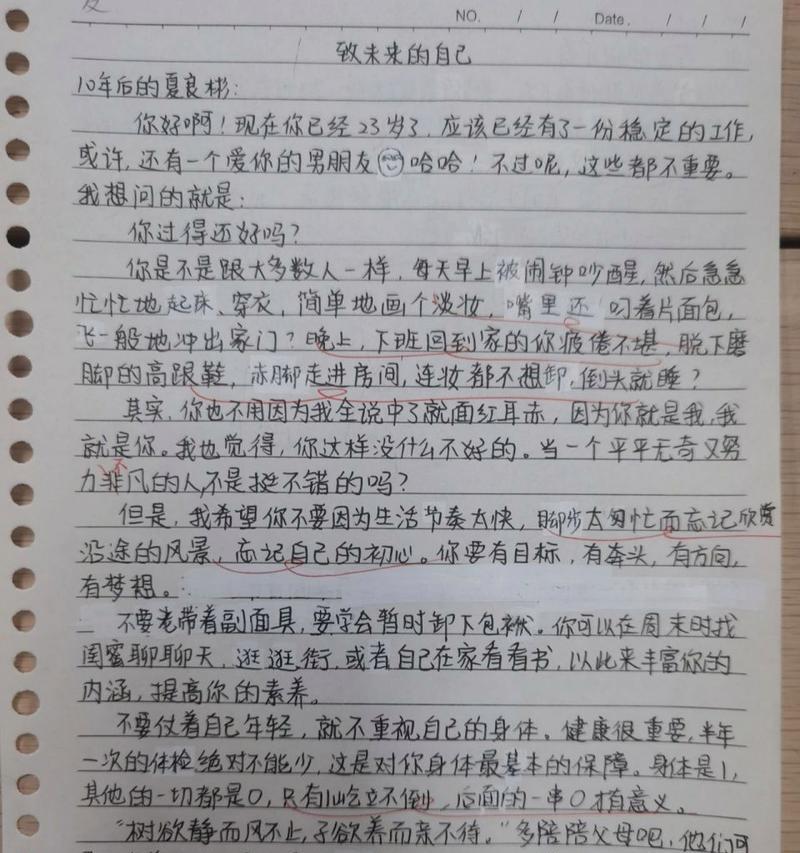 NO. / / Date. / / /
致未来的自己
10年后的夏良彬:
你好啊!现在你已经23岁了,应该已经有了一份稳定的工作,
或许,还有一个爱你的男朋友哈哈!不过呢,这些都不重要。
我想问的就是:
你过得还好吗?
你是不是跟大多数人一样,每天早上被闹钟吵醒,然后急急
忙忙地起床、穿衣,简单地画个淡妆,嘴里还叼着片面包,
飞一般地冲出家门?晚上,下班回到家的你疲倦不堪,脱下磨
脚的高跟鞋,赤脚走进房间,连妆都不想卸,倒头就睡?
其实,你也不用因为我全说中了就面红耳赤,因为你就是我,我
就是你。我也觉得,你这样没什么不好的。当一个平平无奇又努
力不凡的人,不是挺不错的吗?
但是,我希望你不要因为生活节奏太快,脚步太匆忙而忘记欣赏
沿途的风景,忘记自己的初心。你要有目标,有奔头,有方向,
有梦想。
不要老带着副面具,要学会暂时卸下包袱。你可以在周末时找
闺蜜聊聊天,逛逛街,或者自己在家看看书,以此来丰富你的
内涵,提高你的素养。
不要仗着自己年轻,就不重视自己的身体。健康很重要,半年
一次的体检绝对不能少,这是对你身体最基本的保障。身体是1,
其他的一切都是0,只有1屹立不倒,后面的一串0才有意义。
“树欲静而风不止,子欲养而亲不待。”多陪陪父母吧,他们可